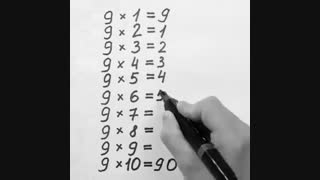 9 × 1 = 9
9 × 2 = 1
9 × 3 = 2
9 × 4 = 3
9 × 5 = 4
9 × 6 = 5
9 × 7 =
9 × 8 =
9 × 9 =
9 × 10 = 90